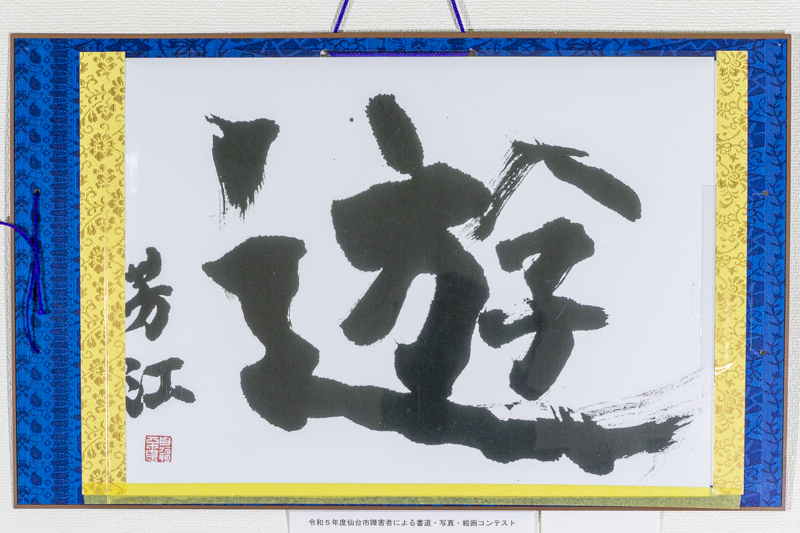 遊
芳江
令和5年度仙台市障害者による書道・写真・絵画コンテスト